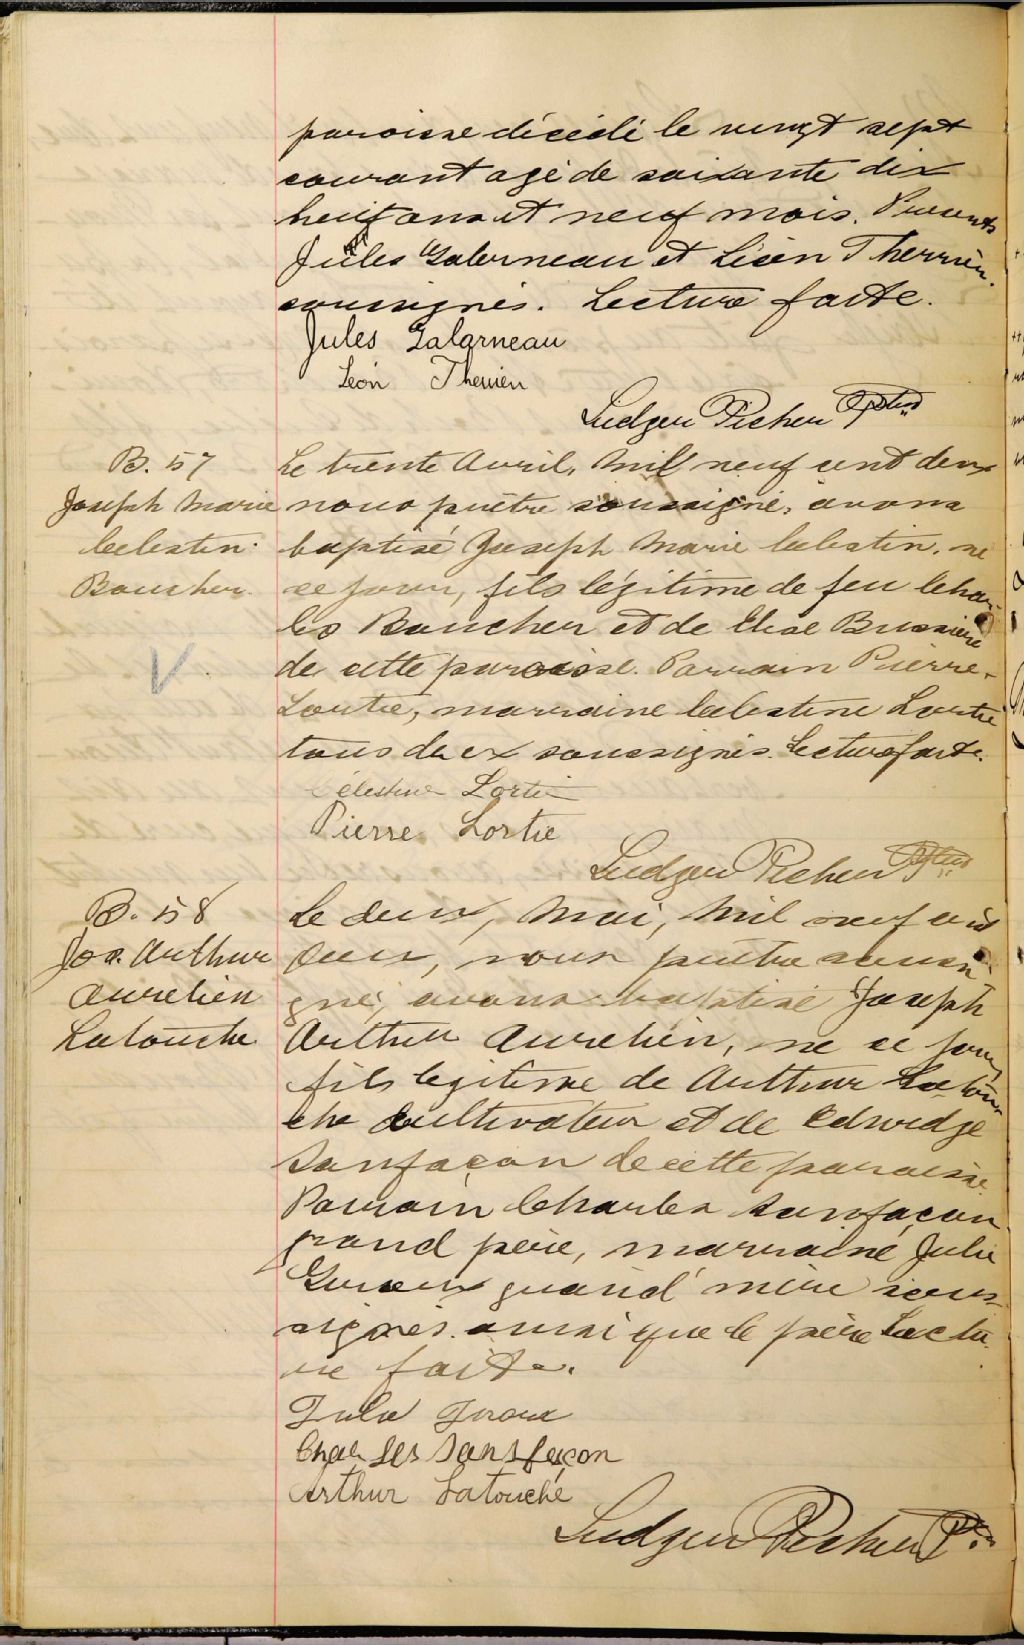 paroisse décédé le vingt sept
courant agé de soixante dix
neuf ans et neuf mois. Presents
Jules Galerneau et Léon Therrien.
soussignés. Lecture faite.
Jules Galarneau
Léon Therrien
Ludger Picher Ptre
B. 57
Joseph Marie
Celestin
Boucher.
Le trente Avril, Mil neuf cent deux
nous prêtre soussigné, avons
baptisé Joseph Marie Celestin. né
ce jour, fils légitime de feu Char
les Boucher et de Elise Bussiere
de cette paroisse. Parrain Pierre
Lortie, marraine Celestine Lortie
tous deux soussignés. Lecture faite.
Célestine Lortie
Pierre Lortie
Ludger Picher Ptre
B. 58
Jos. Arthur
Aurelien
Latouche
Le deux, Mai, Mil neuf cent
deux, nous prêtre soussi
gné, avons baptisé Joseph
Arthur Aurelien, né ce jour
fils legitime de Arthur Latou
che Cultivateur et de Edwidge
Sanfaçon de cette paroisse.
Parrain Charles Sanfaçon
grand père, marraine Julie
Giroux grand' mère sous
signés. ainsi que le père Lectu
re faite.
Julie Giroux
Charles Sansfaçon
Arthur Latouche
Ludger Picher Ptre